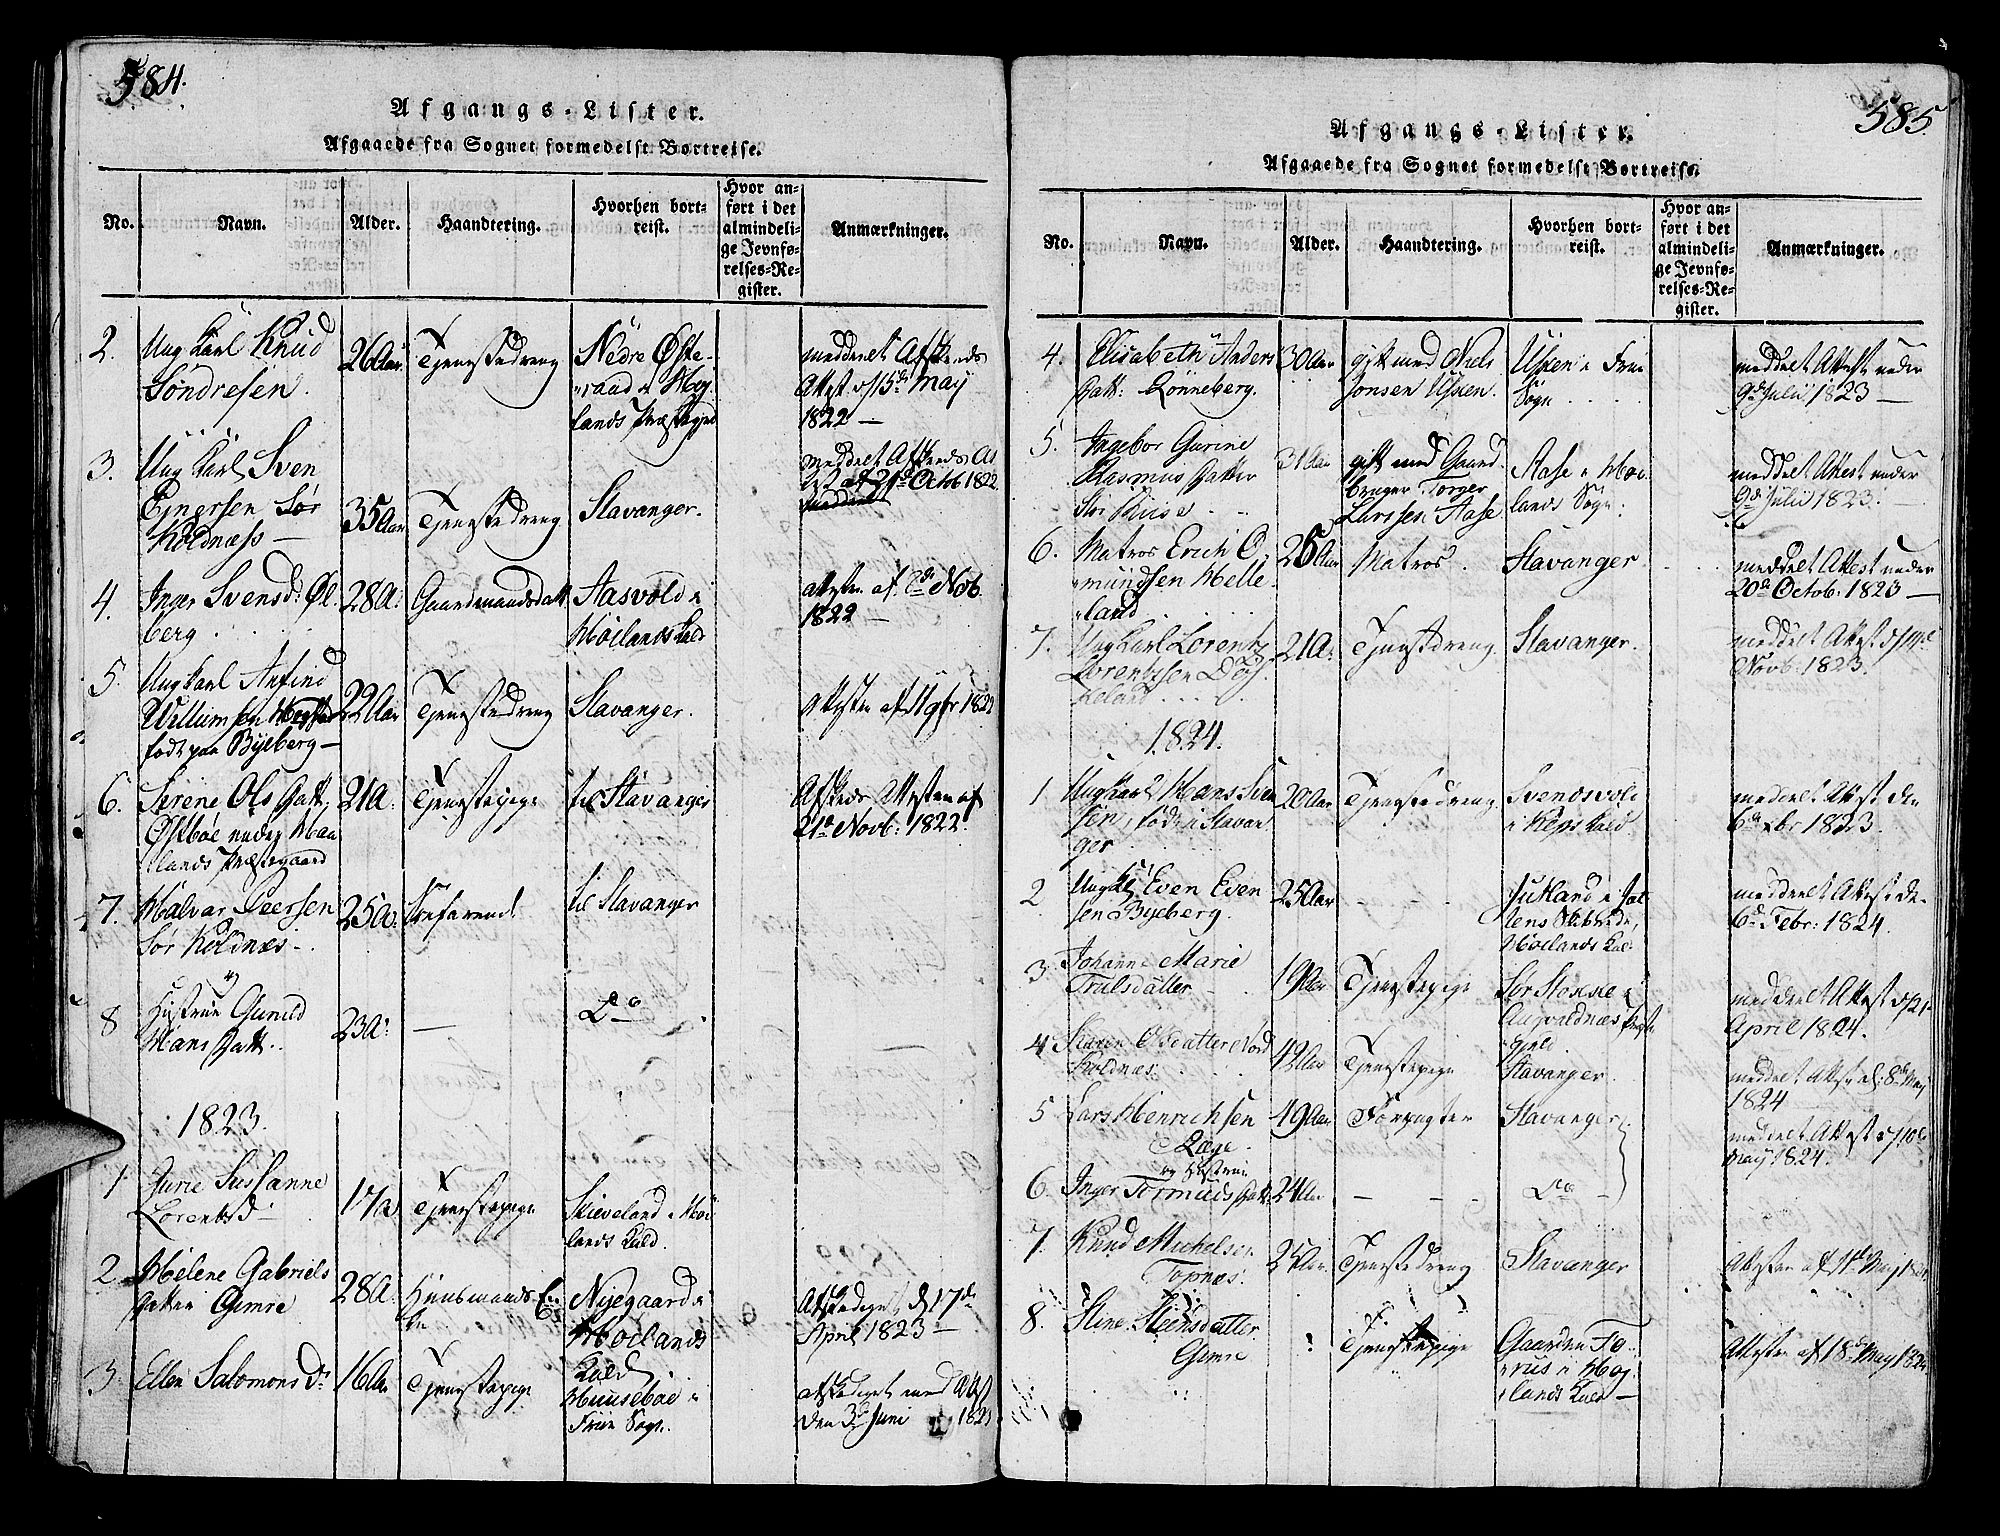 584.
Afgangs-Lister.
Afgaaede fra Sognet formedelst Bortreise.
No.
Navn.
Alder.
Haandtering.
Hvorhen bort-
reist.
Hvor an-
ført i det
almindeli-
ge Jevnfø-
relses-Re-
gister.
Anmærkninger.
2. Ung Karl Knud
Søndresen.
26 Aar.
Tjenestedreng
Nedre Øste-
raad i Høj-
lands Præstegjeld
meddelt Afskeds
Attest af 15de May
1822 —
3. Ung Karl Sven
Ejnersen Sør
Koldnæss —
35 Aar
Tjenestedreng
Stavanger.
meddelt Afskeds
af 21de Octob 1822
4. Inger Svensd: Øl-
berg
28 A:
Gaardmandsdatt
Aasvold i
Høilands Kald
Attesten af 8de Nob.
1822 —
5. Ung Karl Anfind
Willumsen
født paa Byeberg —
22 Aar
Tjenestedreng
Stavanger.
Attesten af 11 9br 1822
6. Serene Ols Datt,
Østbøe
lands Præstegaard
21 A:
Tjenestepige
til Stavanger
Afskeds Attesten af
21de Novb: 1822.
7. Halvar Peersen
Sør Koldnæs —
25 A:
til Stavanger
8 Hustrue Gunild
Hans Datt.
23 A:
—
Do
1823.
1. Jurie Sussanne
Lorentsd
17 A
Tjenestepige
Skieveland i Høi
lands Kald.
2. Helene Gabriels
Datter Gimre
28 A:
Huusmands En
ke
Nyegaard i
Høilands
Kald
Afskediget d 17de
April 1823 —
3. Ellen Salomons Dr
16 A
Tjenestepige
Huusebøe i
Friie Sogn.
afskediget med Attest
den 3de Juni 1823
585.
Afgangs-Lister.
Afgaaede fra Sognet formedelst Bortreise.
No.
Navn.
Alder.
Haandtering.
Hvorhen bort-
reist.
Hvor an-
ført i det
almindeli-
ge Jevnfø-
relses-Re-
gister.
Anmærkninger.
4. Elisabeth Anders
Datt: Rønneberg.
30 Aar
gift med Niels
Jonsen Udsken.
Udsken i Friie
Sogn
meddelt Attest under
9de Julii 1823 —
5. Ingebor Gurine
Rasmus Datter
31 Aar
gift med Gaard-
bruger Torger
Larssen Aase.
Aase i Høi
lands Sogn.
meddelt Attest under
9de Julii 1823.
6. Matros Erich O-
mundsen Helle-
land
26 Aar
Matros.
Stavanger.
meddelt Attest under
20de Octob: 1823 —
7. Ung Karl Lorentz
Lorentzsen Døs-
keland
21 A:
Tjenestdreng
Stavanger.
meddelt Attest
Novb: 1823.
1824.
1 Ung Karl Hans Sven
sen, født i Stavan
ger
20 Aar
Tjenestedreng
Svendsvold
i Kleps Kald.
meddelt Attest den
6te xbr 1823.
2 Ung Kl Even Even
sen Byeberg.
25 Aar
Jutland i
Høilands Kald
meddelt Attest de
6te Febr: 1824.
3. Johanne Marie
Trulsdatter
19 Aar
Tjenestepige
Sør Stokke i
Augvaldnæs Præste
gjeld.
meddelt Attest
April 1824.
4 Karen Olsdatter Nord
Koldnæs.
42 Aar
Tjenestepige
Stavanger.
meddelt Attest d: 8de May
1824
5 Lars Henrichsen
Ræge
49 Aar
Forpagter
Stavanger
meddelt Attest
May 1824.
6. og Hustrue
Inger Tormuds Datt.
24 Aar
Do
7. Knud Michelsen
Topnæs.
25 Aar.
Tjenestedreng
Stavanger
Attesten af May 1824
8. Stine Steensdatter
Gimre
Tjenestepige
Gaarden Fo-
rus i Høj-
lands Kald —
Attesten af 18de May 1824